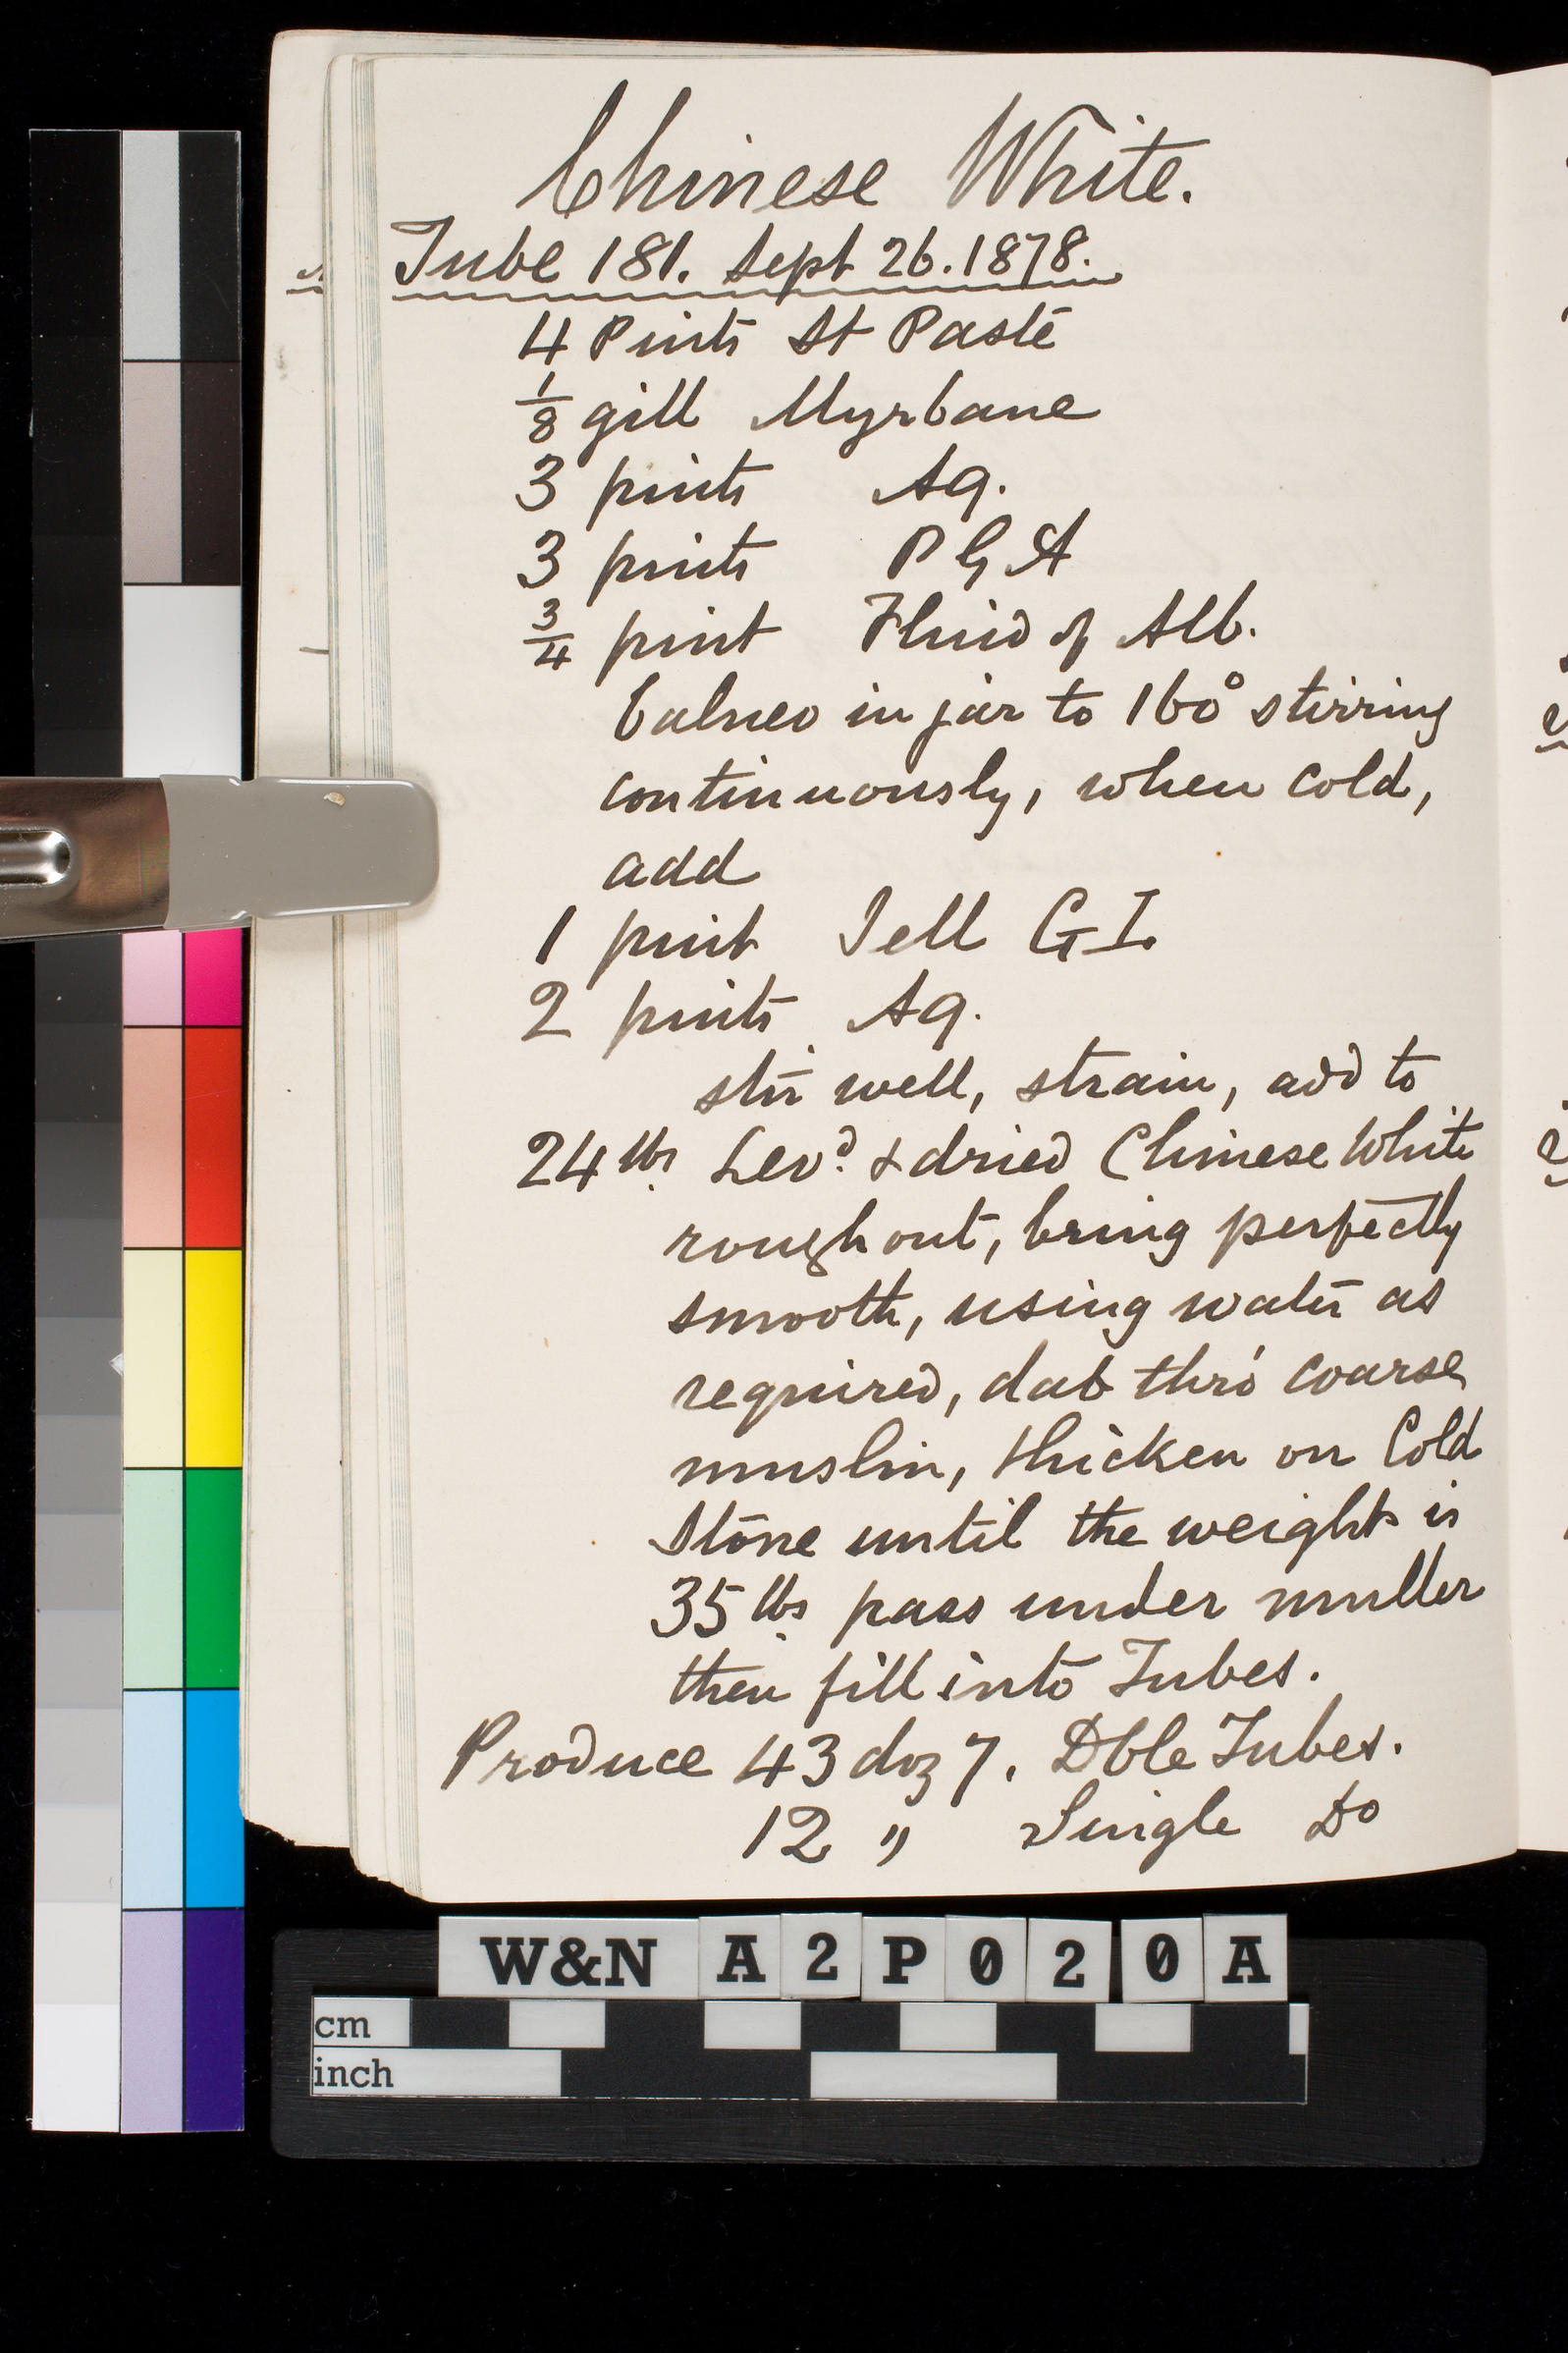 Chinese White.
Tube 181. Sept 26. 1878.
4 Pints St Paste
1/8 gill Myrbane
3 pints Aq.
3 pints P G A
3/4 pint Fluid of Alb.
balneo in jar to 160° stirring
continuously, when cold,
add
1 pint Jell G I.
2 pints Aq.
stir well, strain, add to
24 lbs Levd. & dried Chinese White
rough out, bring perfectly
smooth, using water as
required, dab thro' coarse
muslin, thicken on Cold
Stone until the weight is
35 lbs pass under muller
then fill into Tubes.
Produce 43 doz 7. Dble Tubes.
12 " Single Do
W&N A2P020A
cm
inch